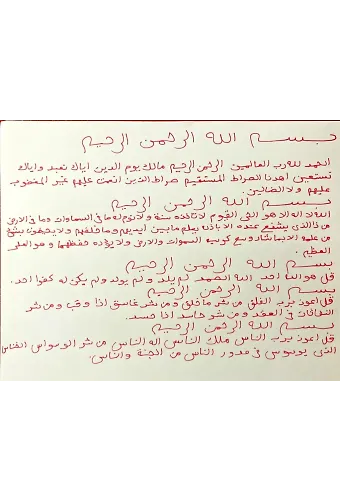 بسم الله الرحمن الرحيم
الحمد لله رب العالمين الرحمن الرحيم مالك يوم الدين اياك نعبد واياك
نستعين اهدنا الصراط المستقيم صراط الذين انعمت عليهم غير المغضوب
عليهم ولا الضالين.
بسم الله الرحمن الرحيم
الله لا اله الا هو الحي القيوم لا تاخذه سنة ولا نوم له ما في السماوات وما في الارض
من ذا الذي يشفع عنده الا باذنه يعلم ما بين ايديهم وما خلفهم ولا يحيطون بشئ
من علمه الا بما شاء وسع كرسيه السموات والارض ولا يؤده حفظهما وهو العلي
العظيم.
بسم الله الرحمن الرحيم
قل هو الله احد. الله الصمد لم يلد ولم يولد ولم يكن له كفوا احد.
بسم الله الرحمن الرحيم
قل اعوذ برب الفلق من شر ما خلق ومن شر غاسق اذا وقب ومن شر
النفاثات في العقد ومن شر حاسد اذا حسد.
بسم الله الرحمن الرحيم
قل اعوذ برب الناس ملك الناس اله الناس من شر الوسواس الخناس
الذي يوسوس في صدور الناس من الجنة والناس.